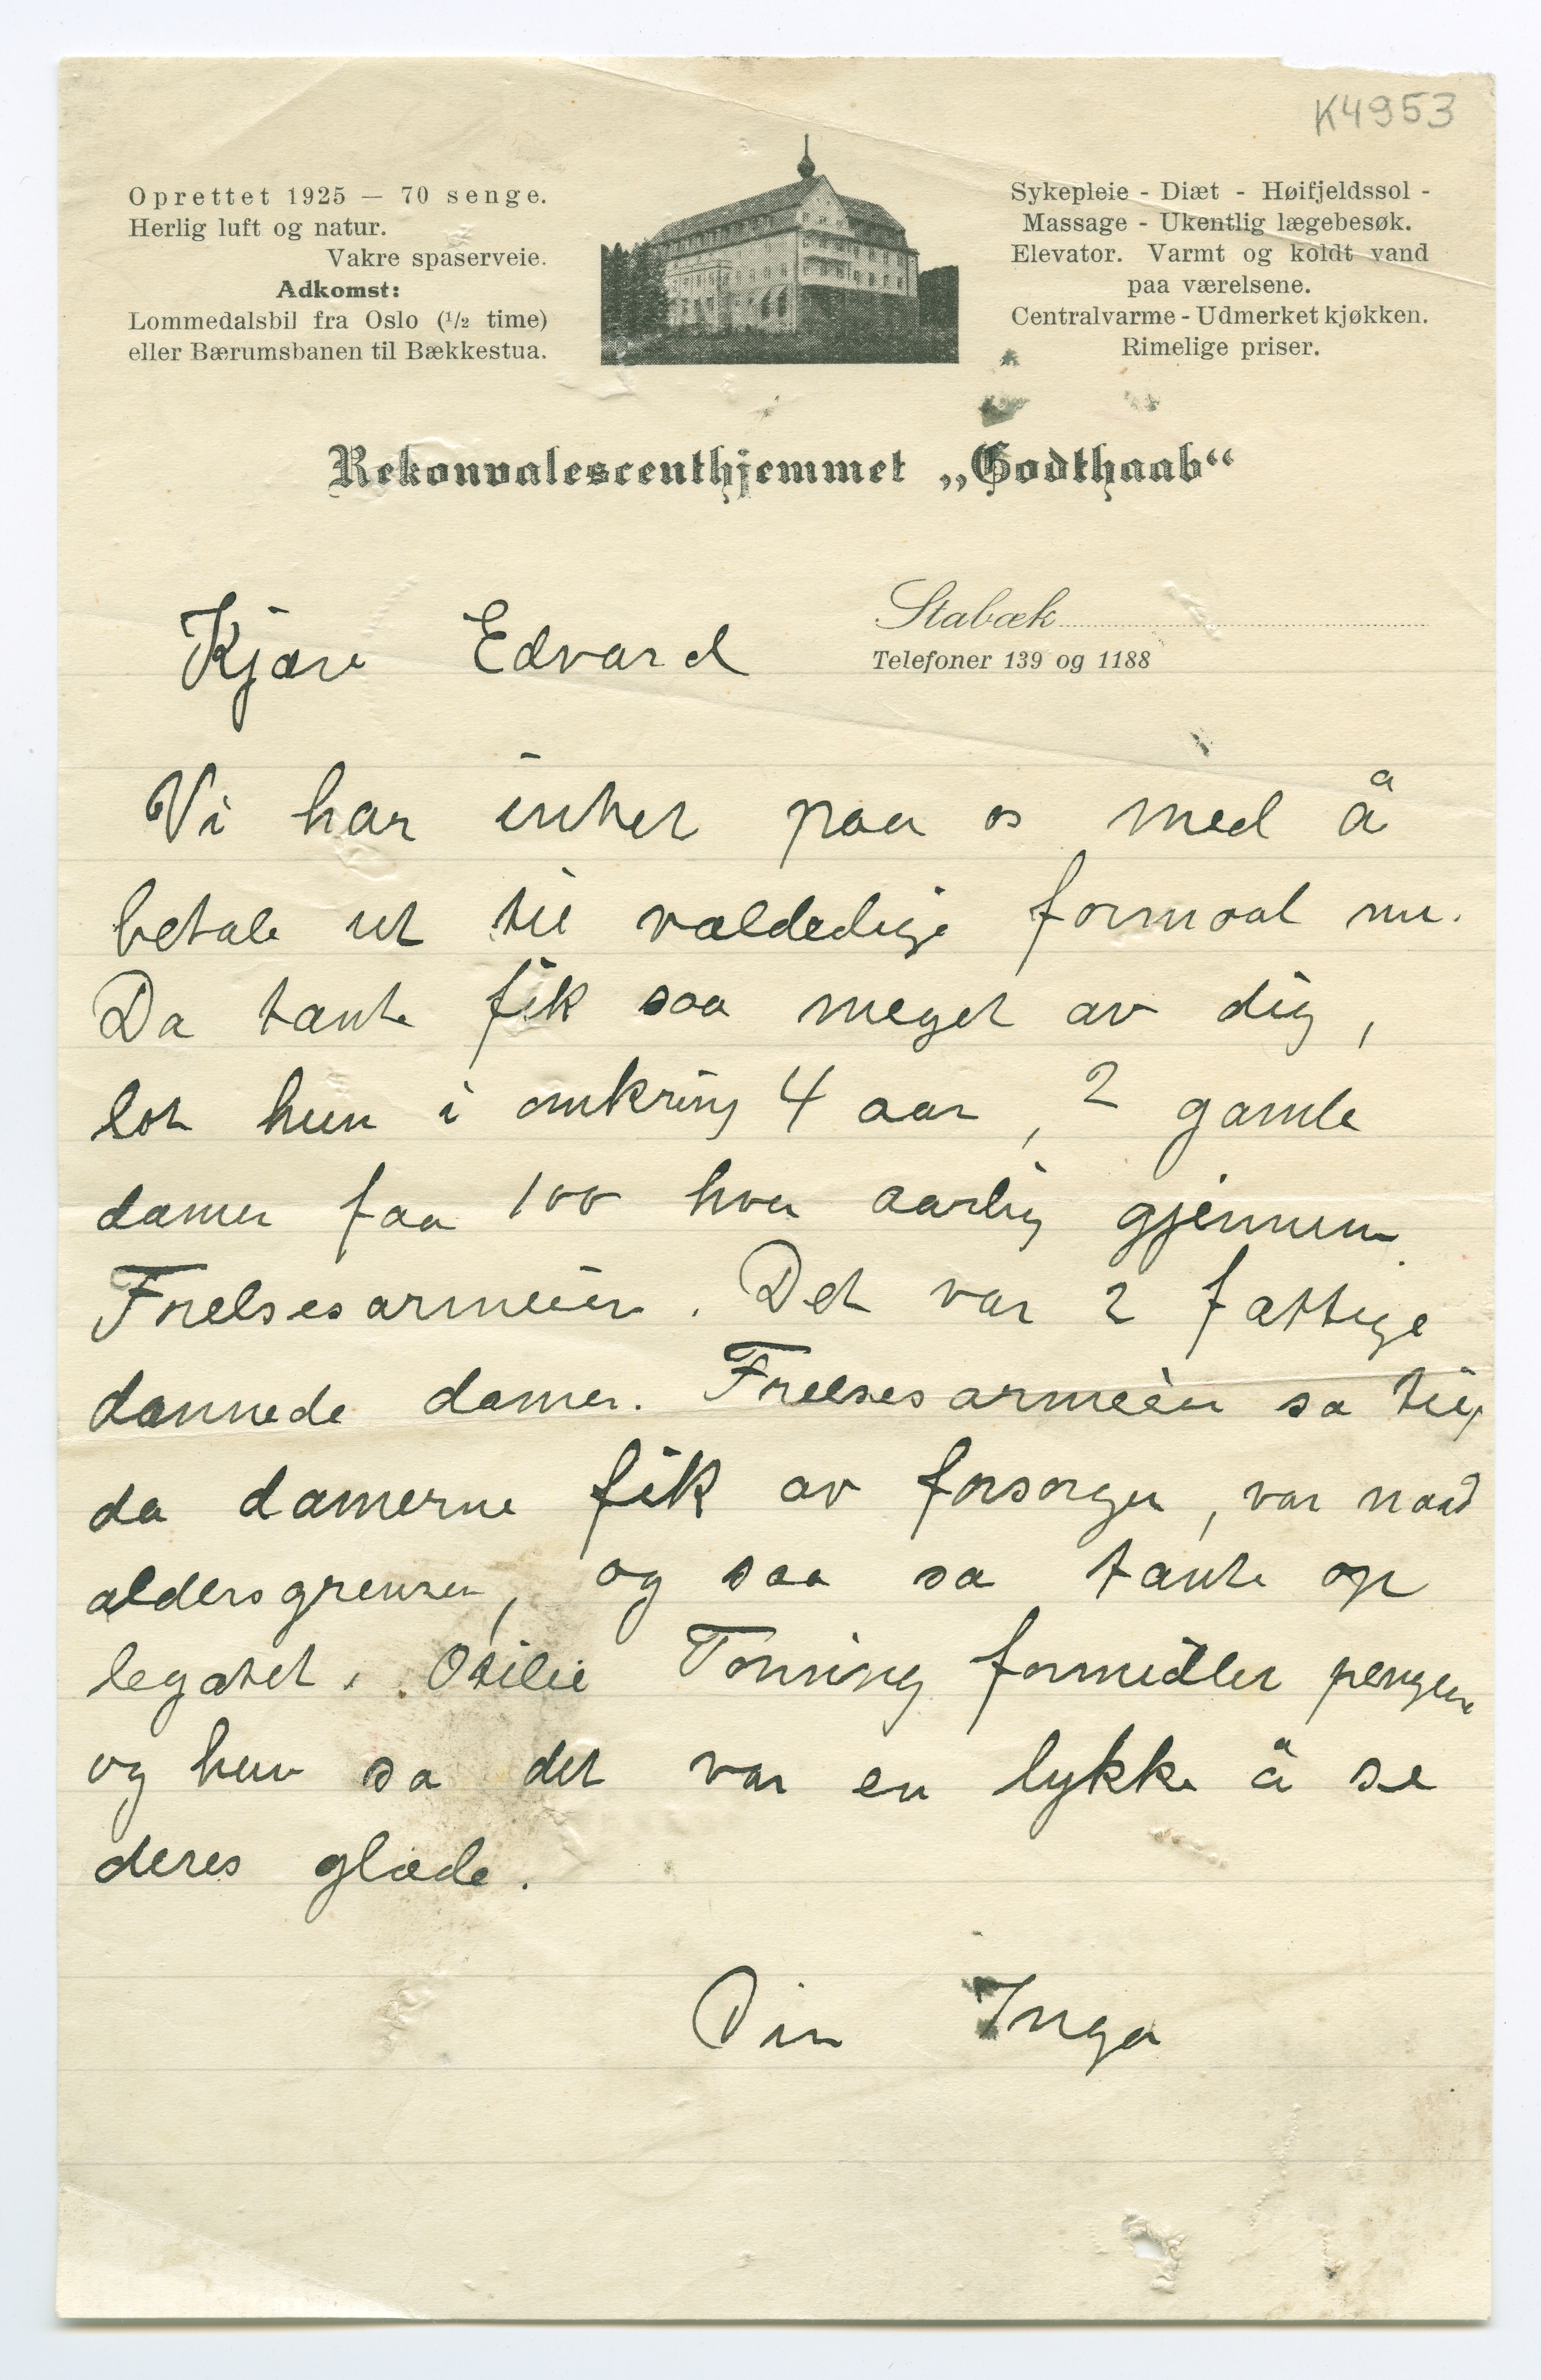 K4953
Oprettet 1925 — 70 senge.
Herlig luft og natur.
Vakre spaserveie.
Adkomst:
Lommedalsbil fra Oslo (1/2 time)
eller Bærumsbanen til Bækkestua.
Sykepleie - Diæt - Høifjeldssol -
Massage - Ukentlig lægebesøk.
Elevator. Varmt og koldt vand
paa værelsene.
Centralvarme - Udmerket kjøkken.
Rimelige priser.
Rekonvalescenthjemmet „Godthaab“
Stabæk
Telefoner 139 og 1188
Kjære Edvard
Vi har intet paa os med å
betale ut til vældedige formaal nu.
Da tante fik saa meget av dig,
lot hun i omkring 4 aar, 2 gamle
damer faa 100 hver aarlig gjennem
Frelsesarmeèn. Det var 2 fattige
dannede damer. Frelsesarmeèn sa til,
da damerne fik av forsorgen, var naad
aldersgrensen, og saa sa tante op
legatet. Otilie Tonning formidler pengene
og hun sa det var en lykke å se
deres glæde.
Din Inga